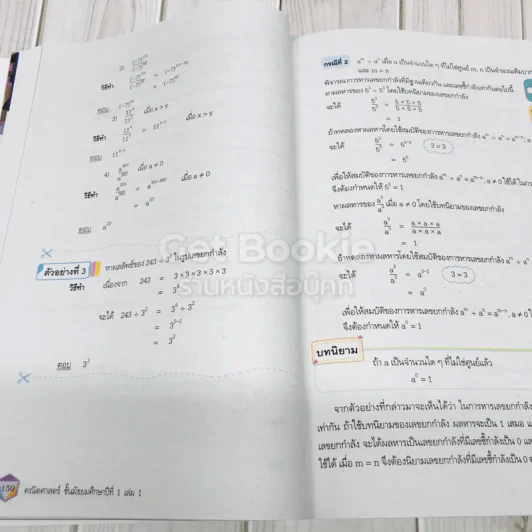 วิธีทำ
ตอบ
3) 11ˣ/11ʸ เมื่อ x > y
วิธีทำ 11ˣ/11ʸ = 11ˣ⁻ʸ เมื่อ x > y
ตอบ 11ˣ⁻ʸ
4) เมื่อ a ≠ 0
วิธีทำ เมื่อ a ≠ 0
= a²⁰
ตอบ a²⁰
ตัวอย่างที่ 3 หาผลลัพธ์ของ 243 ÷ ในรูปเลขยกกำลัง
วิธีทำ เนื่องจาก 243 = 3 × 3 × 3 × 3 × 3
= 3⁵
จะได้ 243 ÷ 3² = 3⁵ ÷ 3²
= 3⁵⁻²
= 3³
ตอบ 3³
150 คณิตศาสตร์ ชั้นมัธยมศึกษาปีที่ 1 เล่ม 1
กรณีที่ 2 aᵐ ÷ aⁿ เมื่อ a เป็นจำนวนใด ๆ ที่ไม่ใช่ศูนย์ m, n เป็นจำนวนเต็มบวก
และ m = n
พิจารณาการหารเลขยกกำลังที่มีฐานเดียวกัน และเลขชี้กำลังเท่ากันต่อไปนี้
หาผลหารของ 5³ ÷ 5³ โดยใช้บทนิยามของเลขยกกำลัง
จะได้ 5³/5³ = 5 × 5 × 5/5 × 5 × 5
= 1
ถ้าทดลองหาผลหารโดยใช้สมบัติของการหารเลขยกกำลัง aᵐ ÷ aⁿ = aᵐ⁻ⁿ,
จะได้ 5³/5³ = 5³⁻³ 3 = 3
= 5⁰
เพื่อให้สมบัติของการหารเลขยกกำลัง aᵐ ÷ aⁿ = aᵐ⁻ⁿ, a ≠ 0 ใช้ได้
จึงต้องกำหนดให้ 5⁰ = 1
หาผลหารของ a³/a³ เมื่อ a ≠ 0 โดยใช้บทนิยามของเลขยกกำลัง
จะได้ a³/a³ = a × a × a/a × a × a
= 1
ถ้าทดลองหาผลหารโดยใช้สมบัติของการหารเลขยกกำลัง aᵐ ÷
จะได้ a³/a³ = a³⁻³ 3 = 3
= a⁰
เพื่อให้สมบัติของการหารเลขยกกำลัง aᵐ ÷ aⁿ = aᵐ⁻ⁿ, a ≠ 0
จึงต้องกำหนดให้ a⁰ = 1
บทนิยาม
ถ้า a เป็นจำนวนใด ๆ ที่ไม่ใช่ศูนย์แล้ว
a⁰ = 1
จากตัวอย่างที่กล่าวมาจะเห็นได้ว่า ในการหารเลขยกกำลัง
เท่ากัน ถ้าใช้บทนิยามของเลขยกกำลัง ผลหารจะเป็น 1 เสมอ
เลขยกกำลัง จะได้ผลหารเป็นเลขยกกำลังที่มีเลขชี้กำลังเป็น 0
ใช้ได้ เมื่อ m = n จึงต้องนิยามเลขยกกำลังที่มีเลขชี้กำลังเป็น 0
Get Bookie
ร้านหนังสือบุ๊คกี้